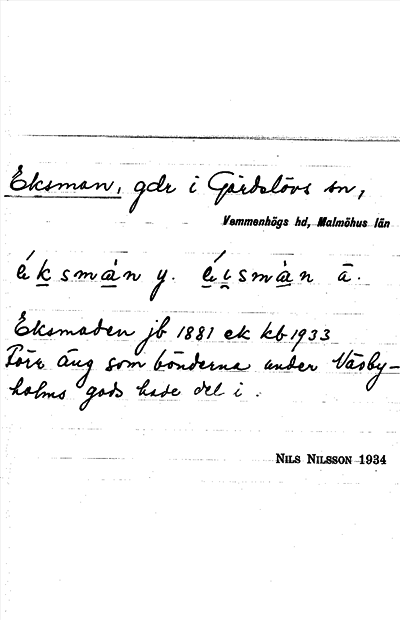 Eksman, gdr i Gärdslövs sn,
Vemmenhögs hd, Malmöhus län
é k s m à n y. é i s m à n ä.
Eksmaden jb 1881 ek kb 1933
Förr äng som bönderna under Näsby-
holms gods hade del i.
NILS NILSSON 1934